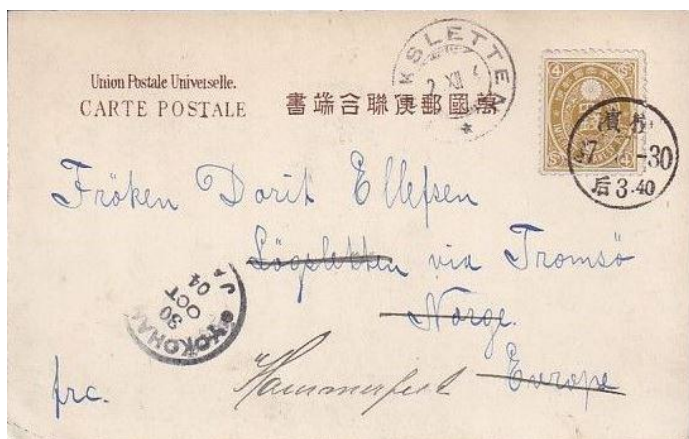 Union Postale Universelle.
CARTE POSTALE
書端合聯便郵國萬
KSLETTEN
2 XII
4 4
5 5
濱
37 -30
后 3.40
Fröken Dorit Ellefsen
Lögsletten via Tromsö
Norge.
Hammerfest Europe
frc.
YOKOHAMA
30
OCT
04